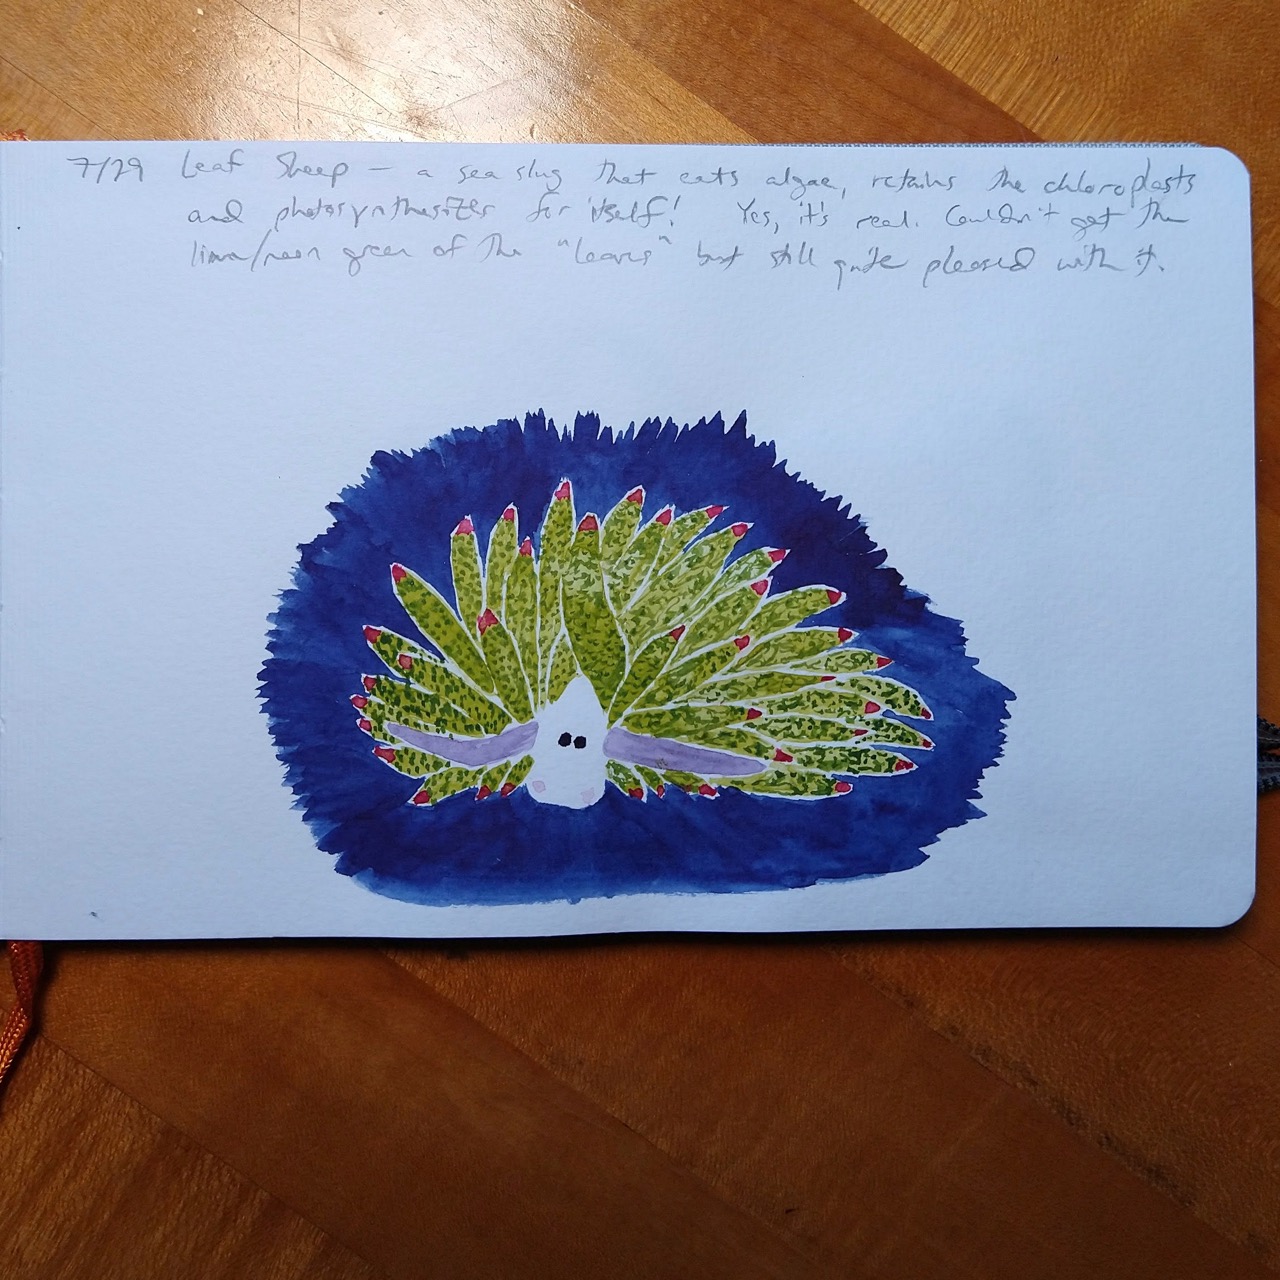 7/29 Leaf Sheep – a sea slug that eats algae, retains the chloroplasts
and photosynthesizes for itself! Yes, it's real. Couldn't get the
lime/neon green of the "leaves" but still quite pleased with it.